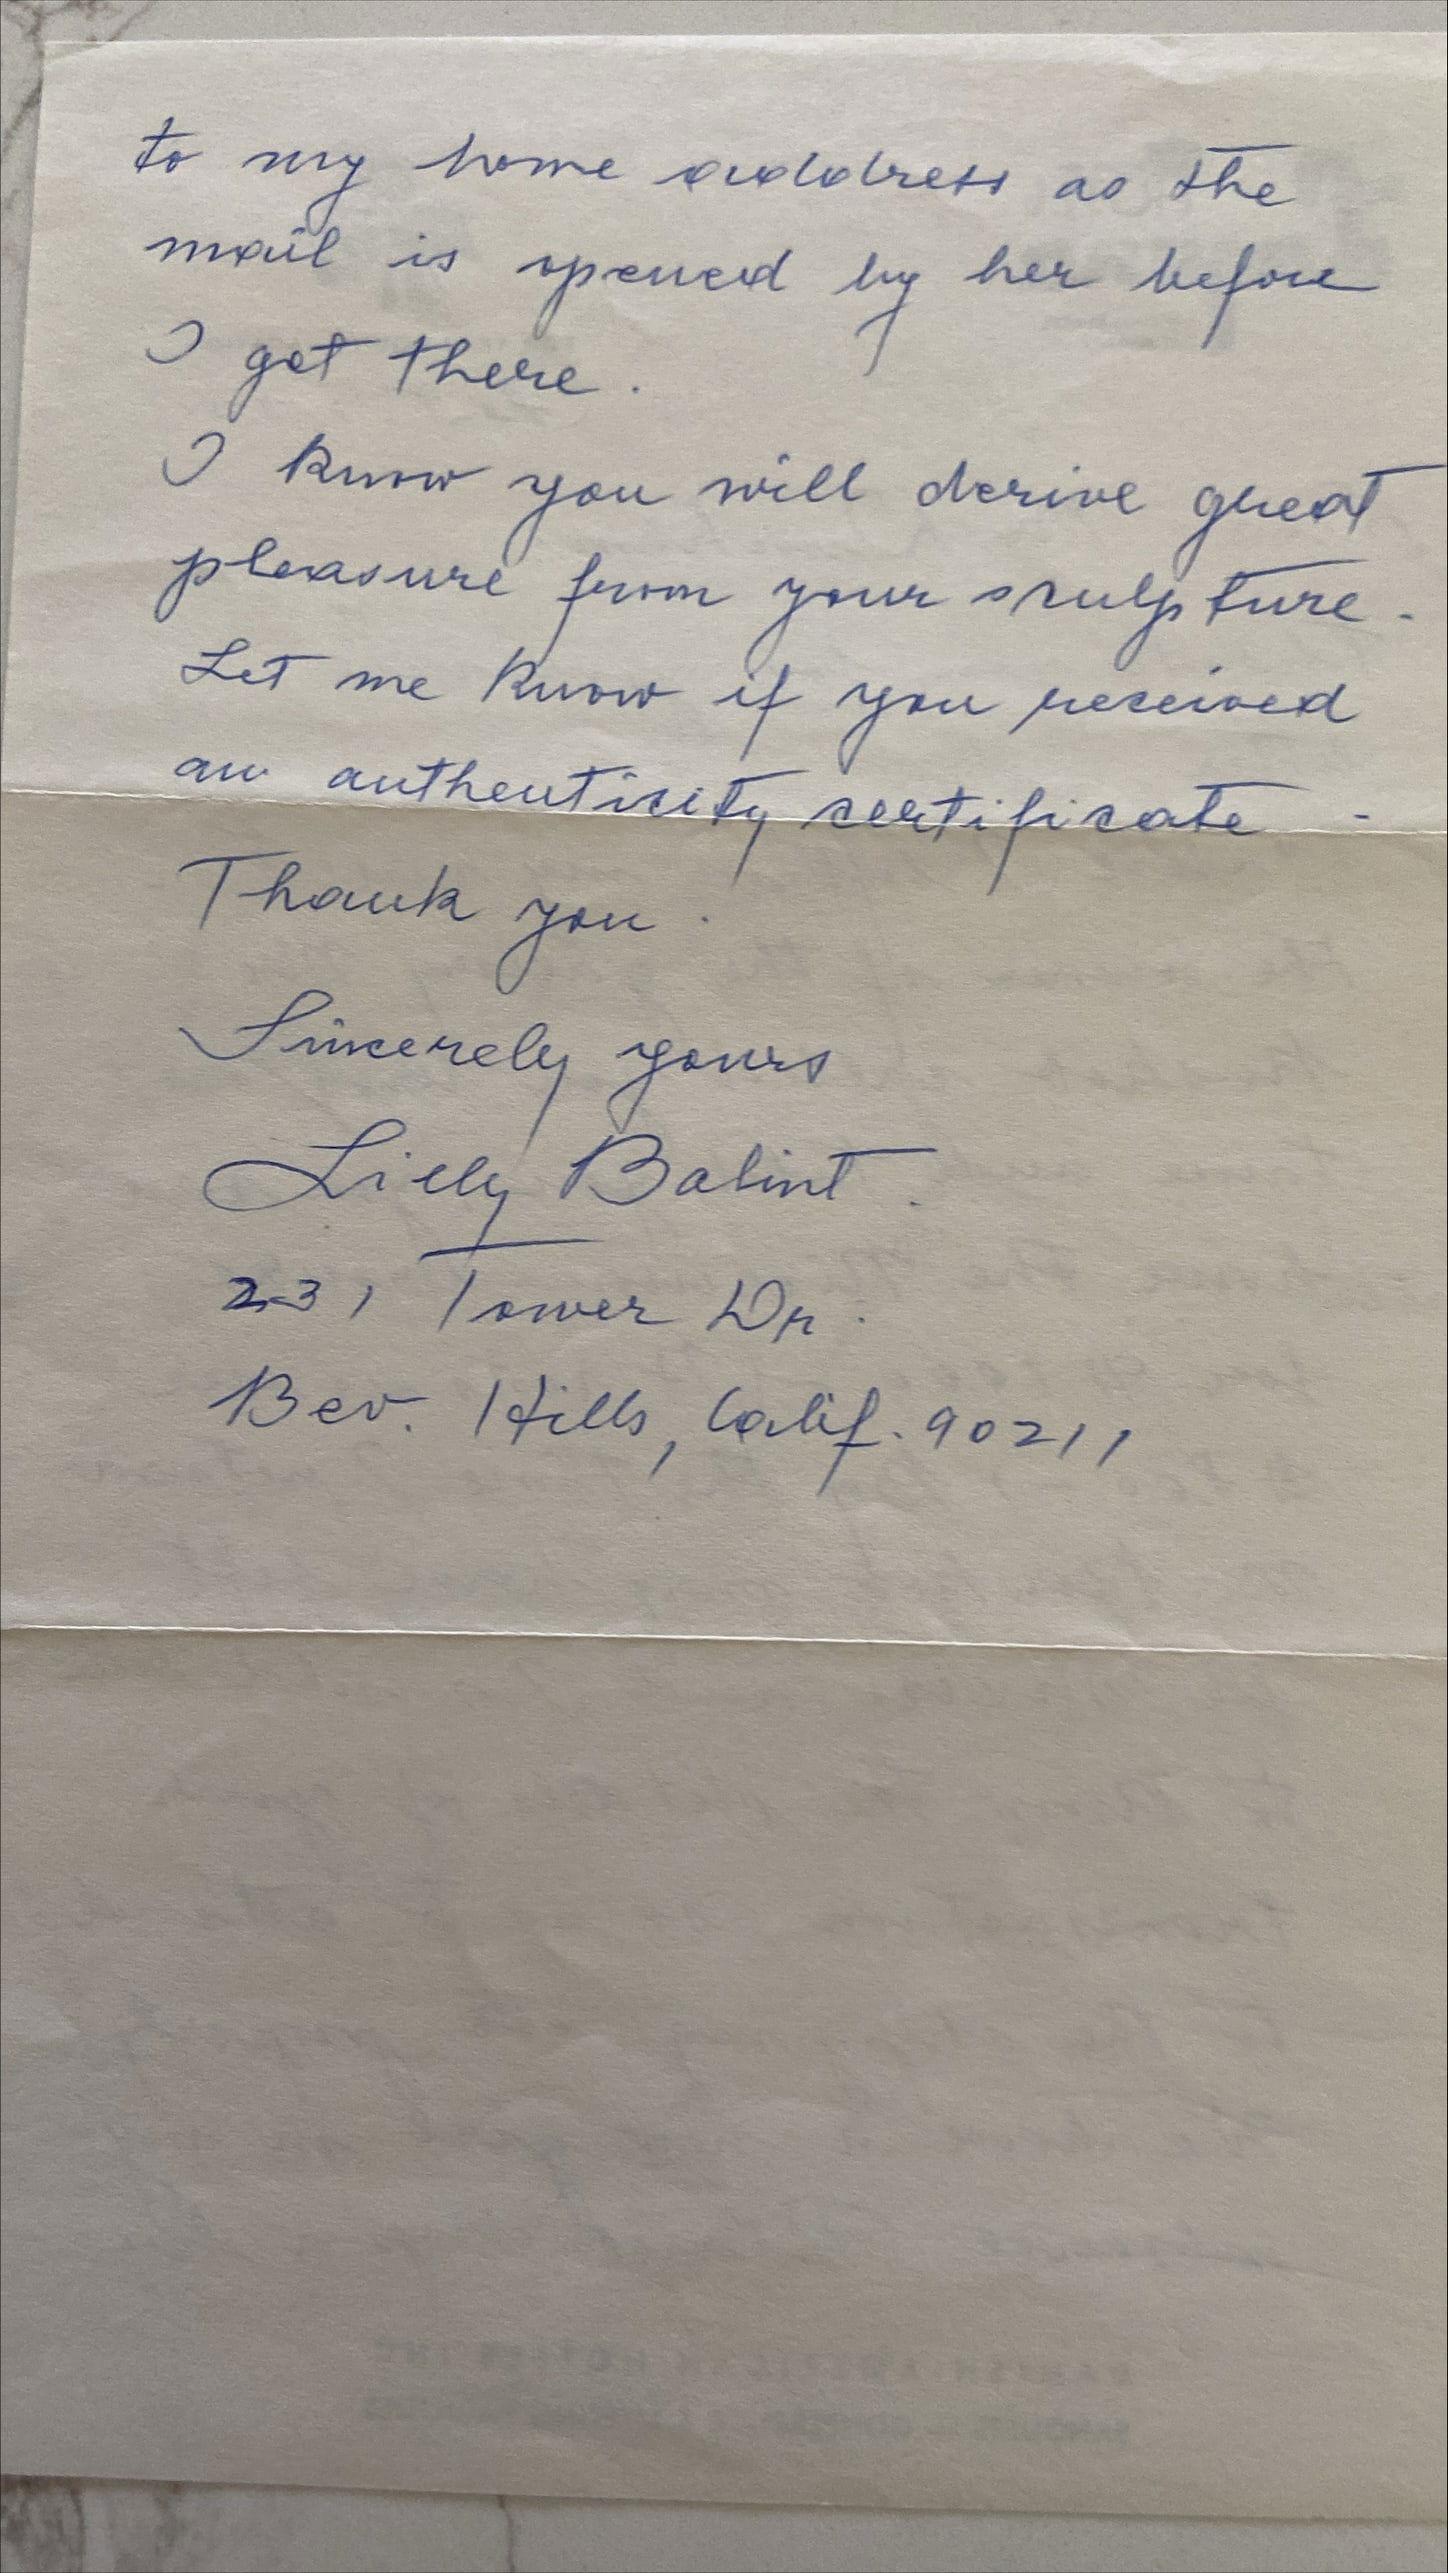 to my home address as the
mail is opened by her before
I get there.
I know you will derive great
pleasure from your sculpture.
Let me know if you received
an authenticity certificate.
Thank you.
Sincerely yours
Lilly Balint.
231 Tower Dr.
Bev. Hills, Calif. 90211